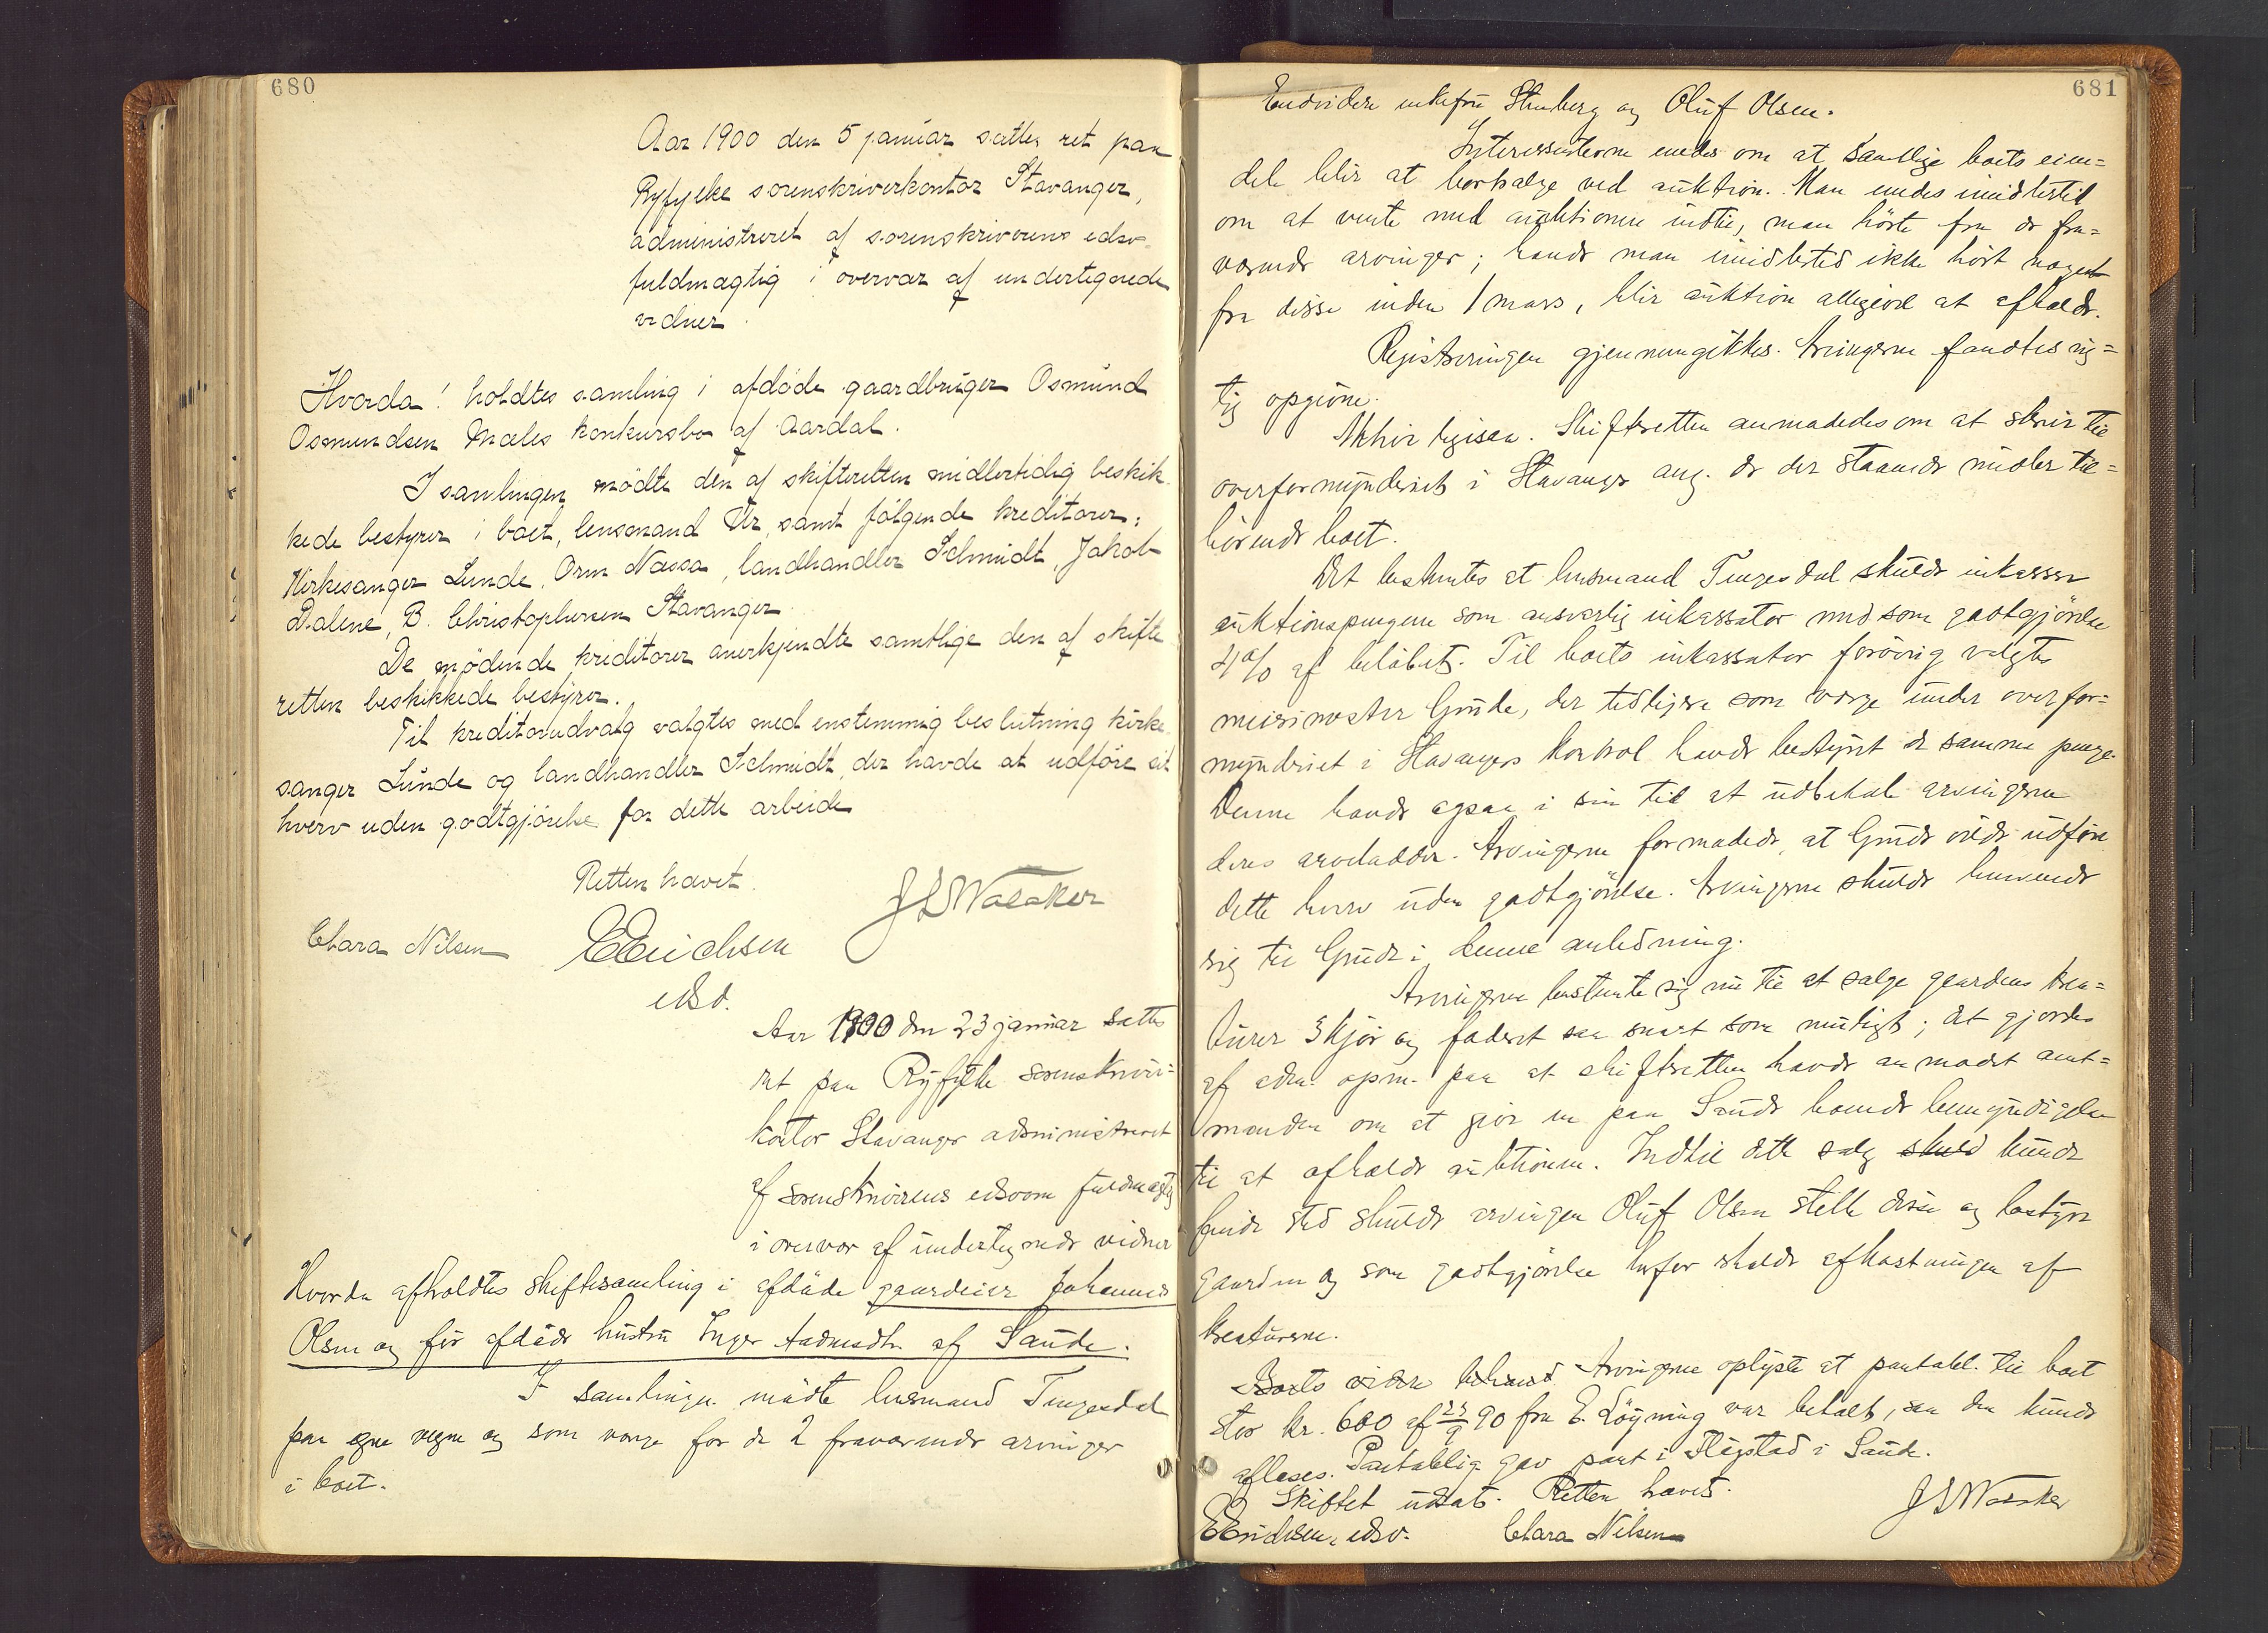 680
Aar 1900 den 5 januar sattes ret paa
Ryfylke sorenskriverkontor Stavanger,
administreret af sorenskriverens edsv.
fuldmægtig i overvær af undertegnede
vidner.
Hvorda! holdtes samling i afdøde gaardbruger Osmund
Osmundsen Mæles konkursbo af Aardal.
I samlingen mødte den af skifteretten midlertidig beskik-
kede bestyrer i boet, lensmand Ur, samt følgende kreditorer:
Kirkesanger Lunde, Orm Næssa, landhandler Schmidt, Jakob
Dalene, B. Christophersen Stavanger.
De mødende kreditorer anerkjendte samtlige den af skifte
retten beskikkede bestyrer.
Til kreditorudvalg valgtes med enstemmig beslutning kirke
sanger Lunde og landhandler Schmidt, der havde at udføre sit
hverv uden godtgjørelse for dette arbeide
Retten hævet.
JLWalaker
Clara Nilsen
EErichsen
edsv.
Aar 1900 den 23 januar sattes
ret paa Ryfylke sorenskriver=
kontor Stavanger administreret
af sorenskriverens edsvorne fuldmægtig
i overvær af undertegnede vidner
Hvorda afholdtes skiftesamling i afdøde gaardeier Johannes
Olsen og før afdøde hustru Inger Aadnesdtr. af Saude.
I samlingen mødte lensmand Tengesdal
paa egne vegne og som værge for de 2 fraværende arvinger
i boet.
681
Endvidere enkefru Stenberg og Oluf Olsen.
Interessenterne enedes om at samtlige boets eien=
dele blir at bortsælge ved auktion. Man enedes imidlertid
om at vente med auktionen indtil, man hørte fra de fra=
værende arvinger; havde man imidlertid ikke hørt noget
fra disse inden 1 mars, blir auktion alligevel at afholde.
Registreringen gjennemgikkes. Arvingerne fandtes rig=
tig opgivne.
Skifteretten anmodedes om at skrive til
overformynderiet i Stavanger ang. de der staaende midler til=
hørende boet.
Det bestemtes at lensmand Tengesdal skulde inkassere
auktionspengene som ansvarlig inkassator mod som godtgjørelse
4% af beløbet. Til boets inkassator forøvrig valgtes
Gunde, der tidligere som værge under overfor=
mynderiet i Stavangers kontrol havde bestyret de samme penge.
Denne havde ogsaa i sin tid at udbetale arvingerne
deres arvelodder. Arvingerne formodede, at Gunde vilde udføre
dette hverv uden godtgjørelse. Arvingerne skulde henvende
sig til Gunde i denne anledning.
Arvingerne bestemte sig nu til at sælge gaardens krea=
turer skjør og foderet saa snart som muligt; det gjordes
af adm. opm. paa at skifteretten havde anmodet amt=
manden om at give en paa Saude boende bemyndigelse
til at afholde auktionen. Indtil dette salg skuld kunde
finde sted skulde arvingen Oluf Olsen stelle disse og bestyre
gaarden og som godtgjørelse herfor skulde afkastningen af
kreaturerne.
Boets videre behand. Arvingerne oplyste at pantobl. til boet
stor kr. 600 af 23/9 90 fra E. Løyning var betalt, saa den kunde
aflæses. Pantoblig. gav pant i Fligstad i Saude.
Skiftet udsat. Retten hævet.
JLWalaker
EErichsen, edsv.
Clara Nilsen